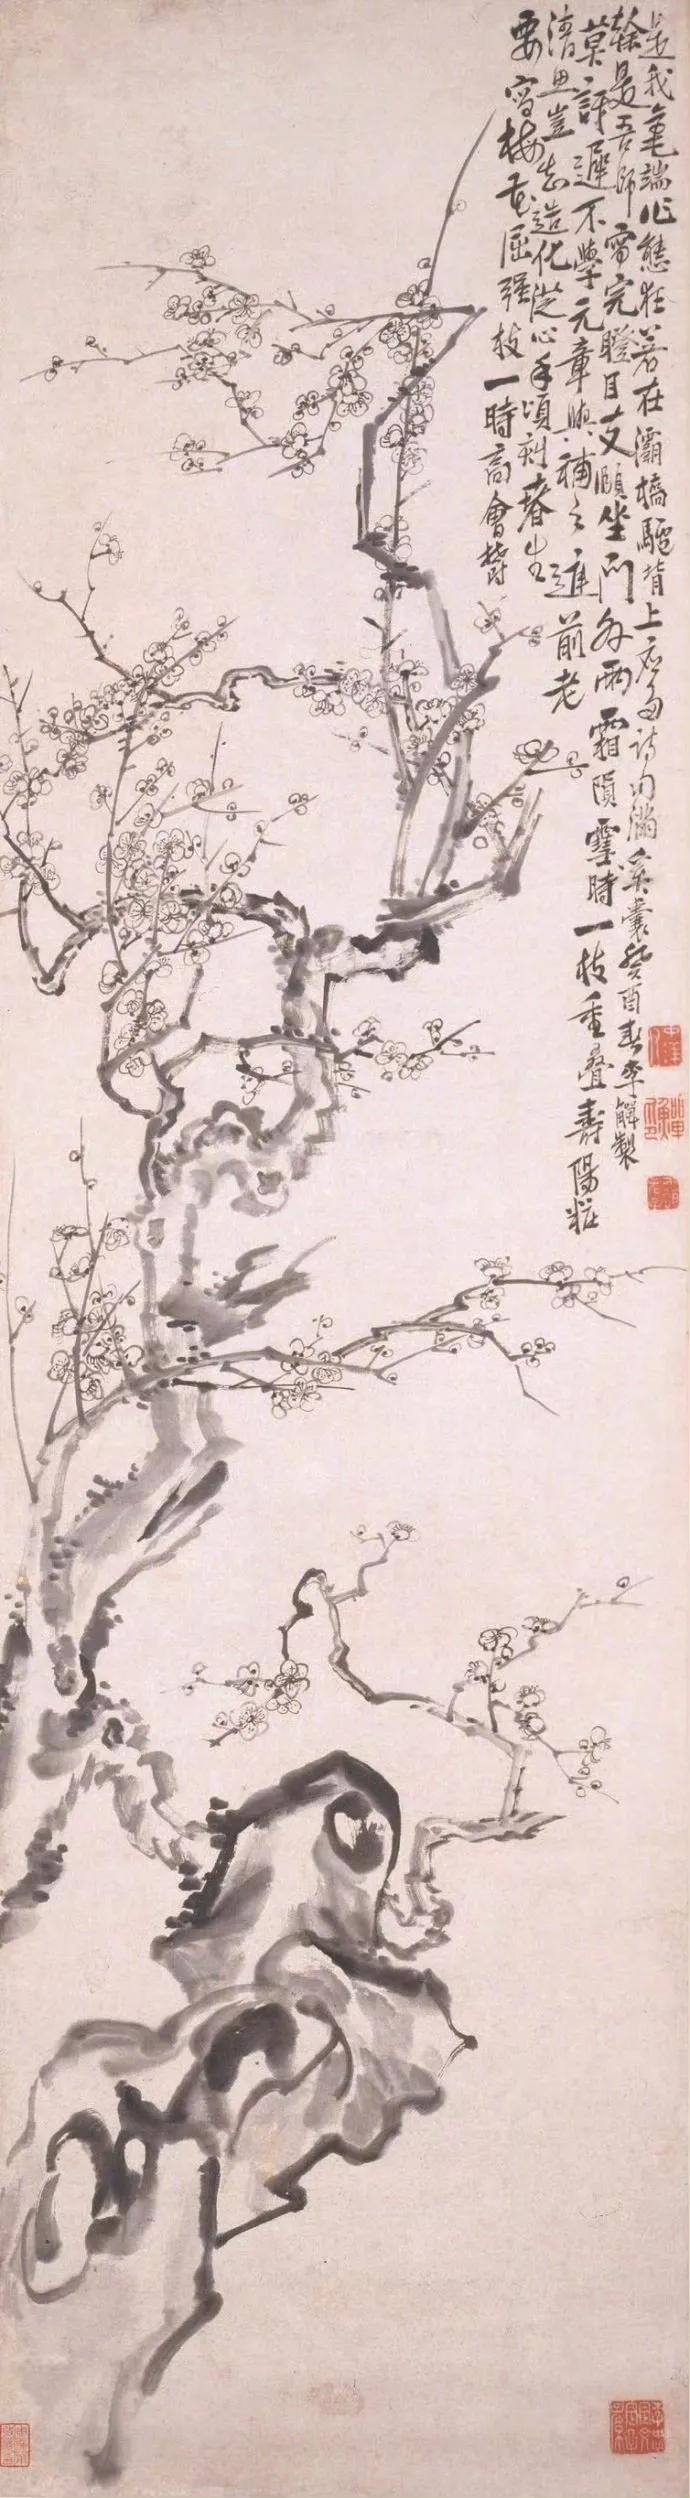 要寫梅花屈強枝一時高會費
清思豈知造化從心手頃刻春生
莫訝遲不學元章與補之庭前老
榦是吾師寫完瞪目支頤坐門外雨霜隕雪時一枝重疊壽陽粧
是我毫端作態狂若在灞橋驢背上應多詩句滿奚囊癸酉春李觶製